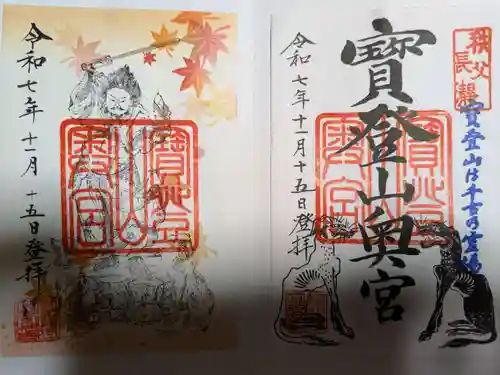 令和七年十一月十五日登拝
秩父
長瀞
寳登山は千古の霊場
寳登山奥宮
令和七年十一月十五日登拝